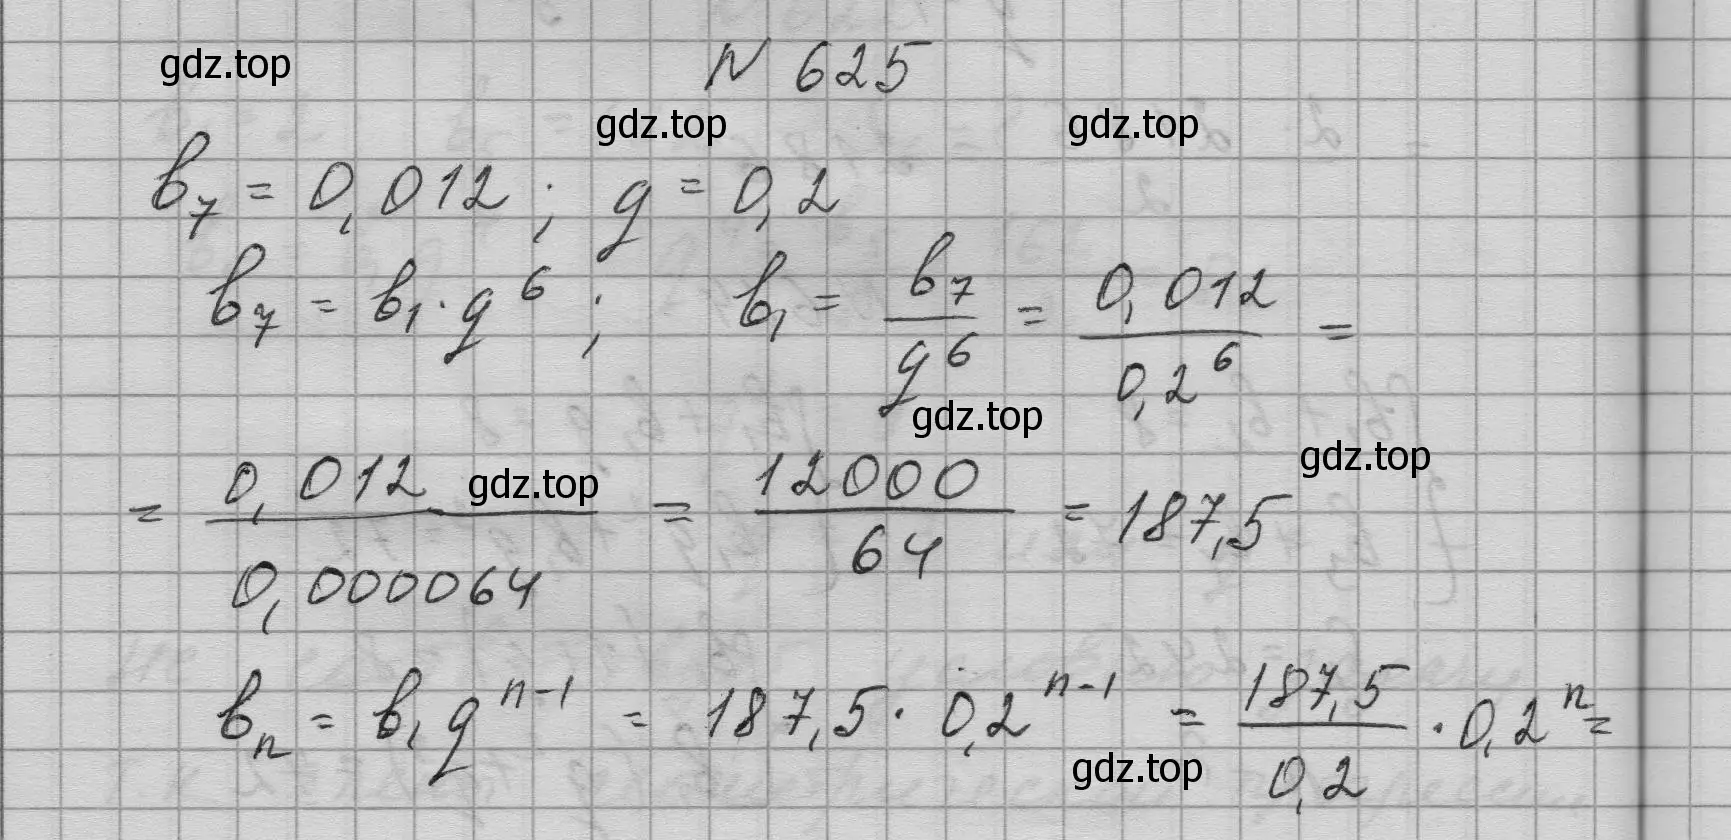 gdz.top
N 625
gdz.top gdz.top
b₇ = 0,012 ; q = 0,2
b₇ = b₁ · q⁶ ; b₁ = b₇/q⁶ = 0,012/0,2⁶ =
gdz.top
gdz.top
gdz.top
= 0,012/0,000064 = 12000/64 = 187,5
bₙ = b₁qⁿ⁻¹ = 187,5 · 0,2ⁿ⁻¹ = 187,5/0,2 · 0,2ⁿ =
gdz.top